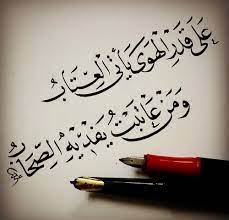 عَلَى قَدَرِ الهَوَى يَأتي العِتَابُ
وَمَن عَاتَبتُ يَفدِيهِ الصِّحَابُ